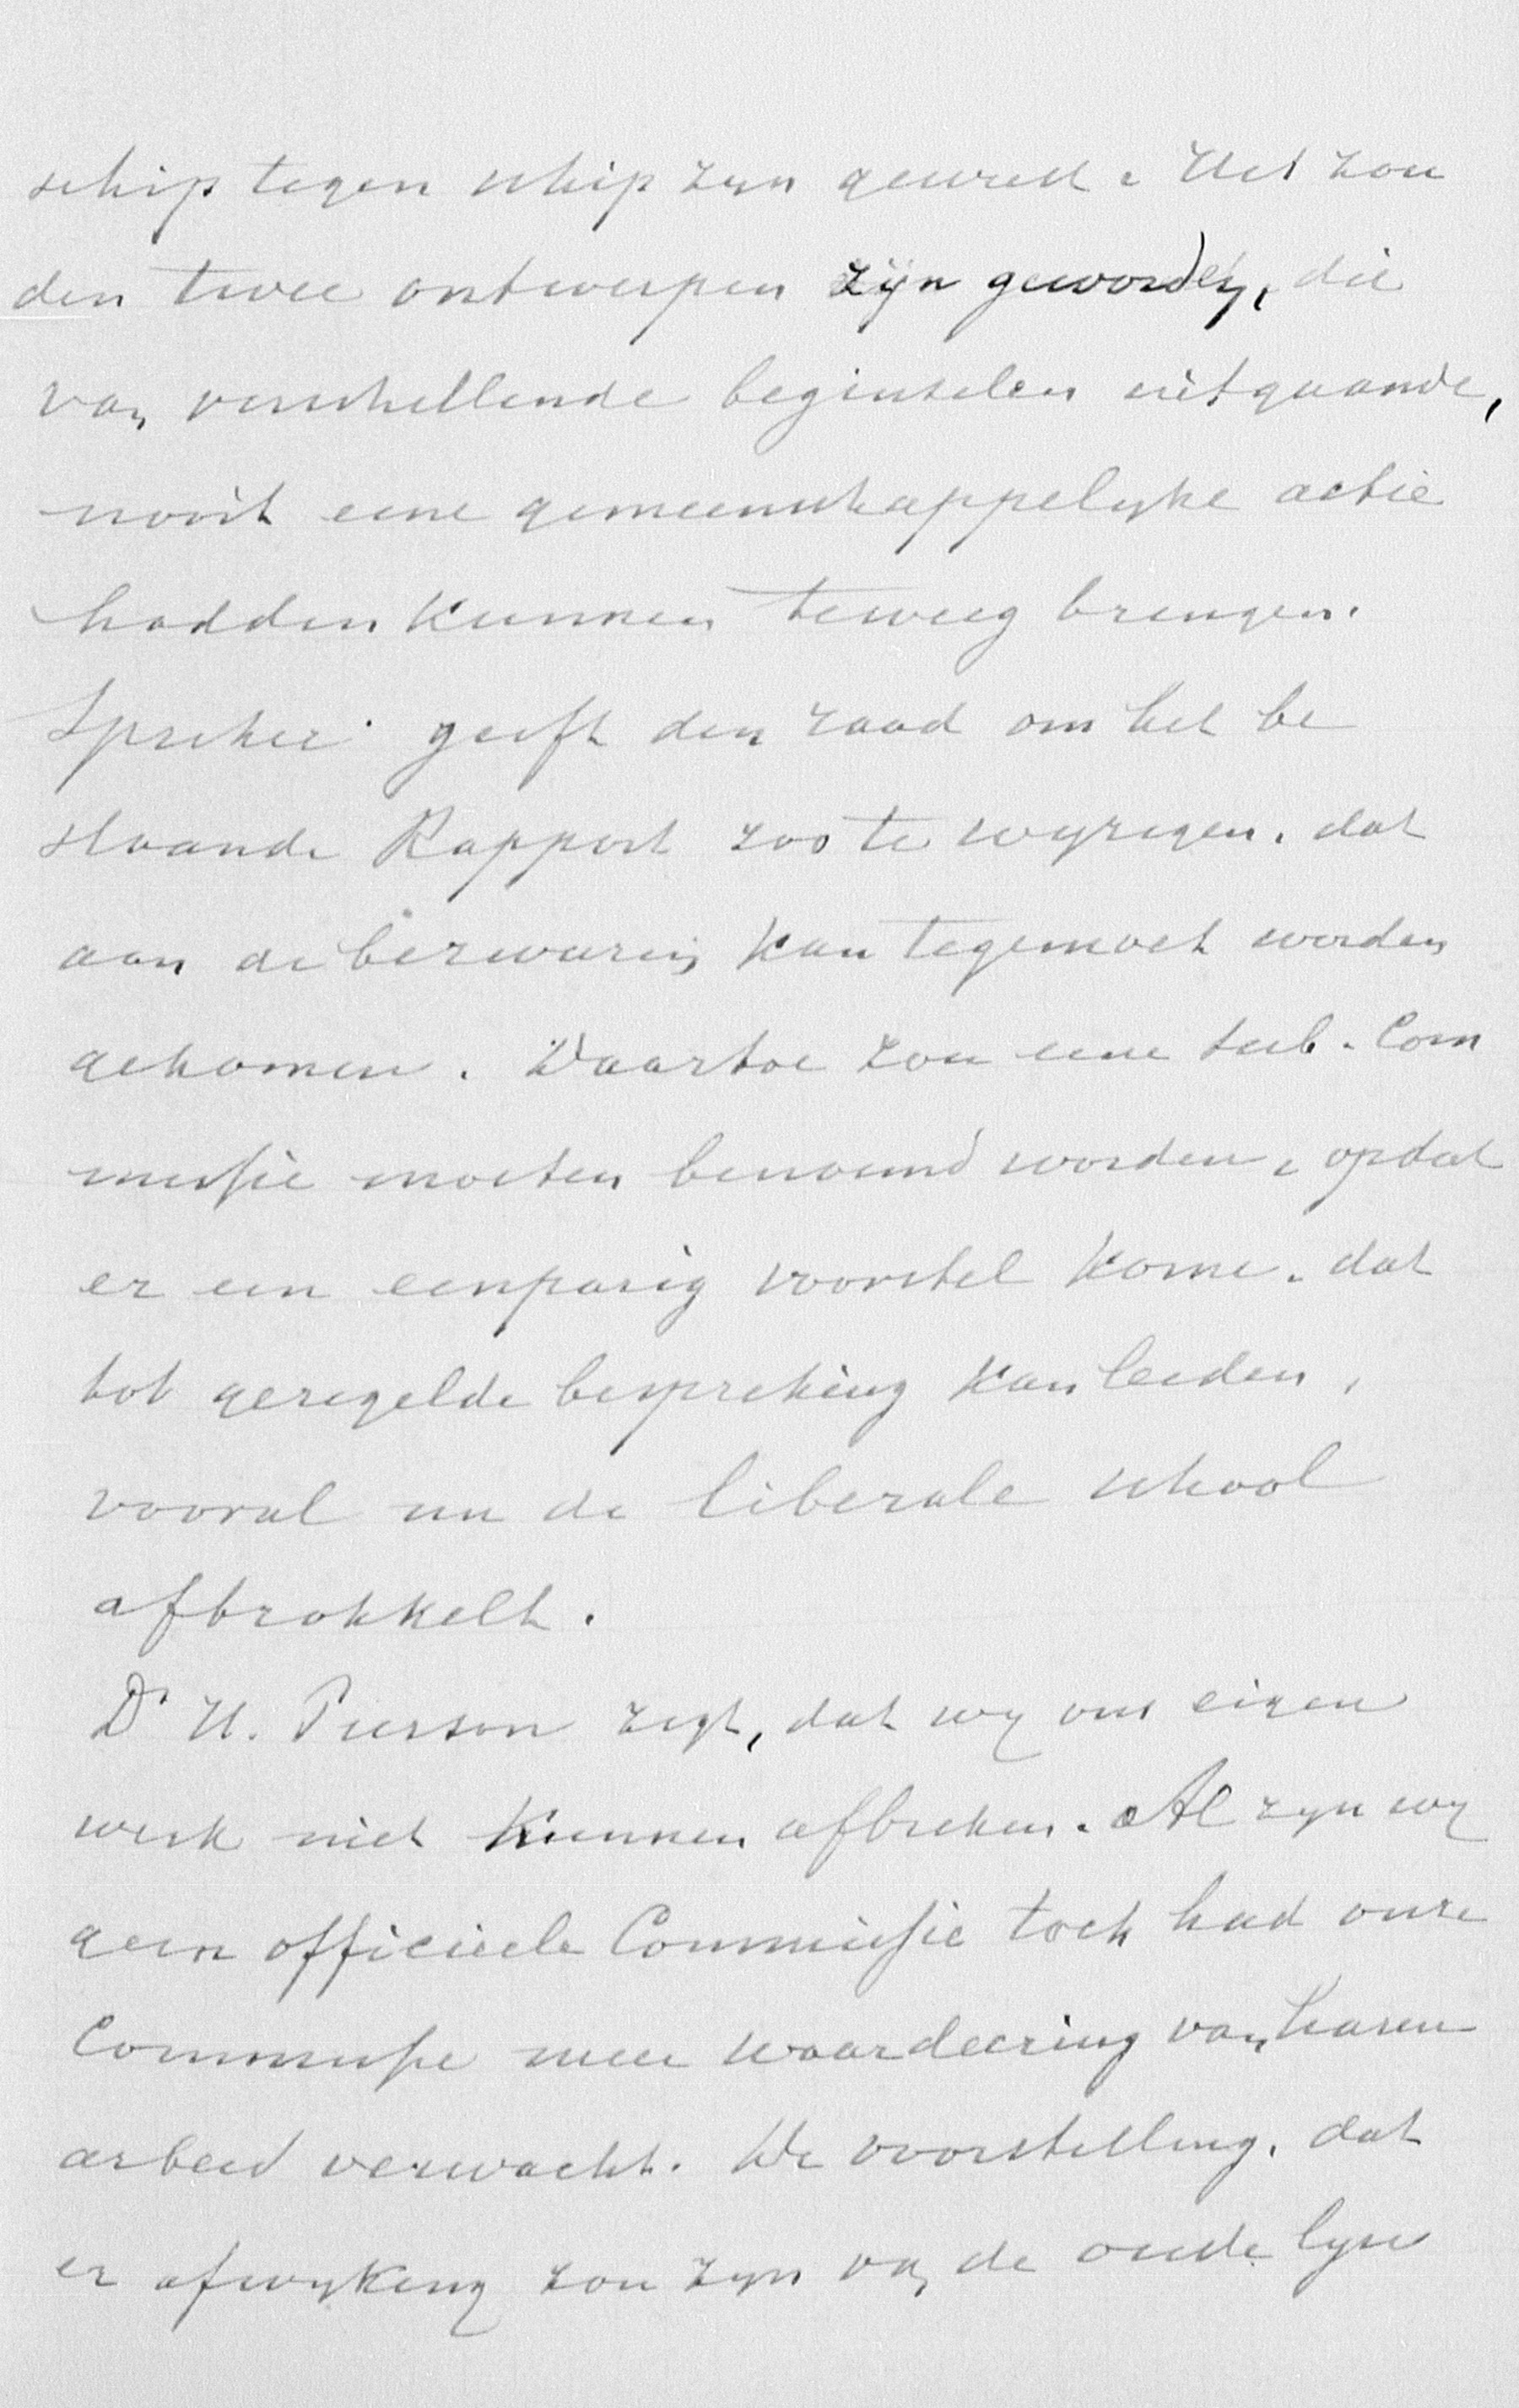 schip tegen schip zyn geweest. Het zou
den twee ontwerpen zijn geworden, die
van verschillende beginselen uitgaande,
nooit eene gemeenschappelyke actie
hadden kunnen teweeg brengen.
Spreker geeft den raad om het be
staande Rapport zoo te wyzigen, dat
aan de bezwaren kan tegemoet worden
gekomen. Daartoe zou eene sub-Com
missie moeten benoemd worden, opdat
er een eenparig voorstel kome, dat
tot geregelde bespreking kan leiden,
vooral nu de liberale school
afbrokkelt.
Dr H. Pierson zegt, dat wy ons eigen
werk niet kunnen afbreken. Al zyn wy
geen officieele Commissie toch had onze
Commissie meer waardeering van haren
arbeid verwacht. De voorstelling, dat
er afwyking zou zyn van de oude lyn